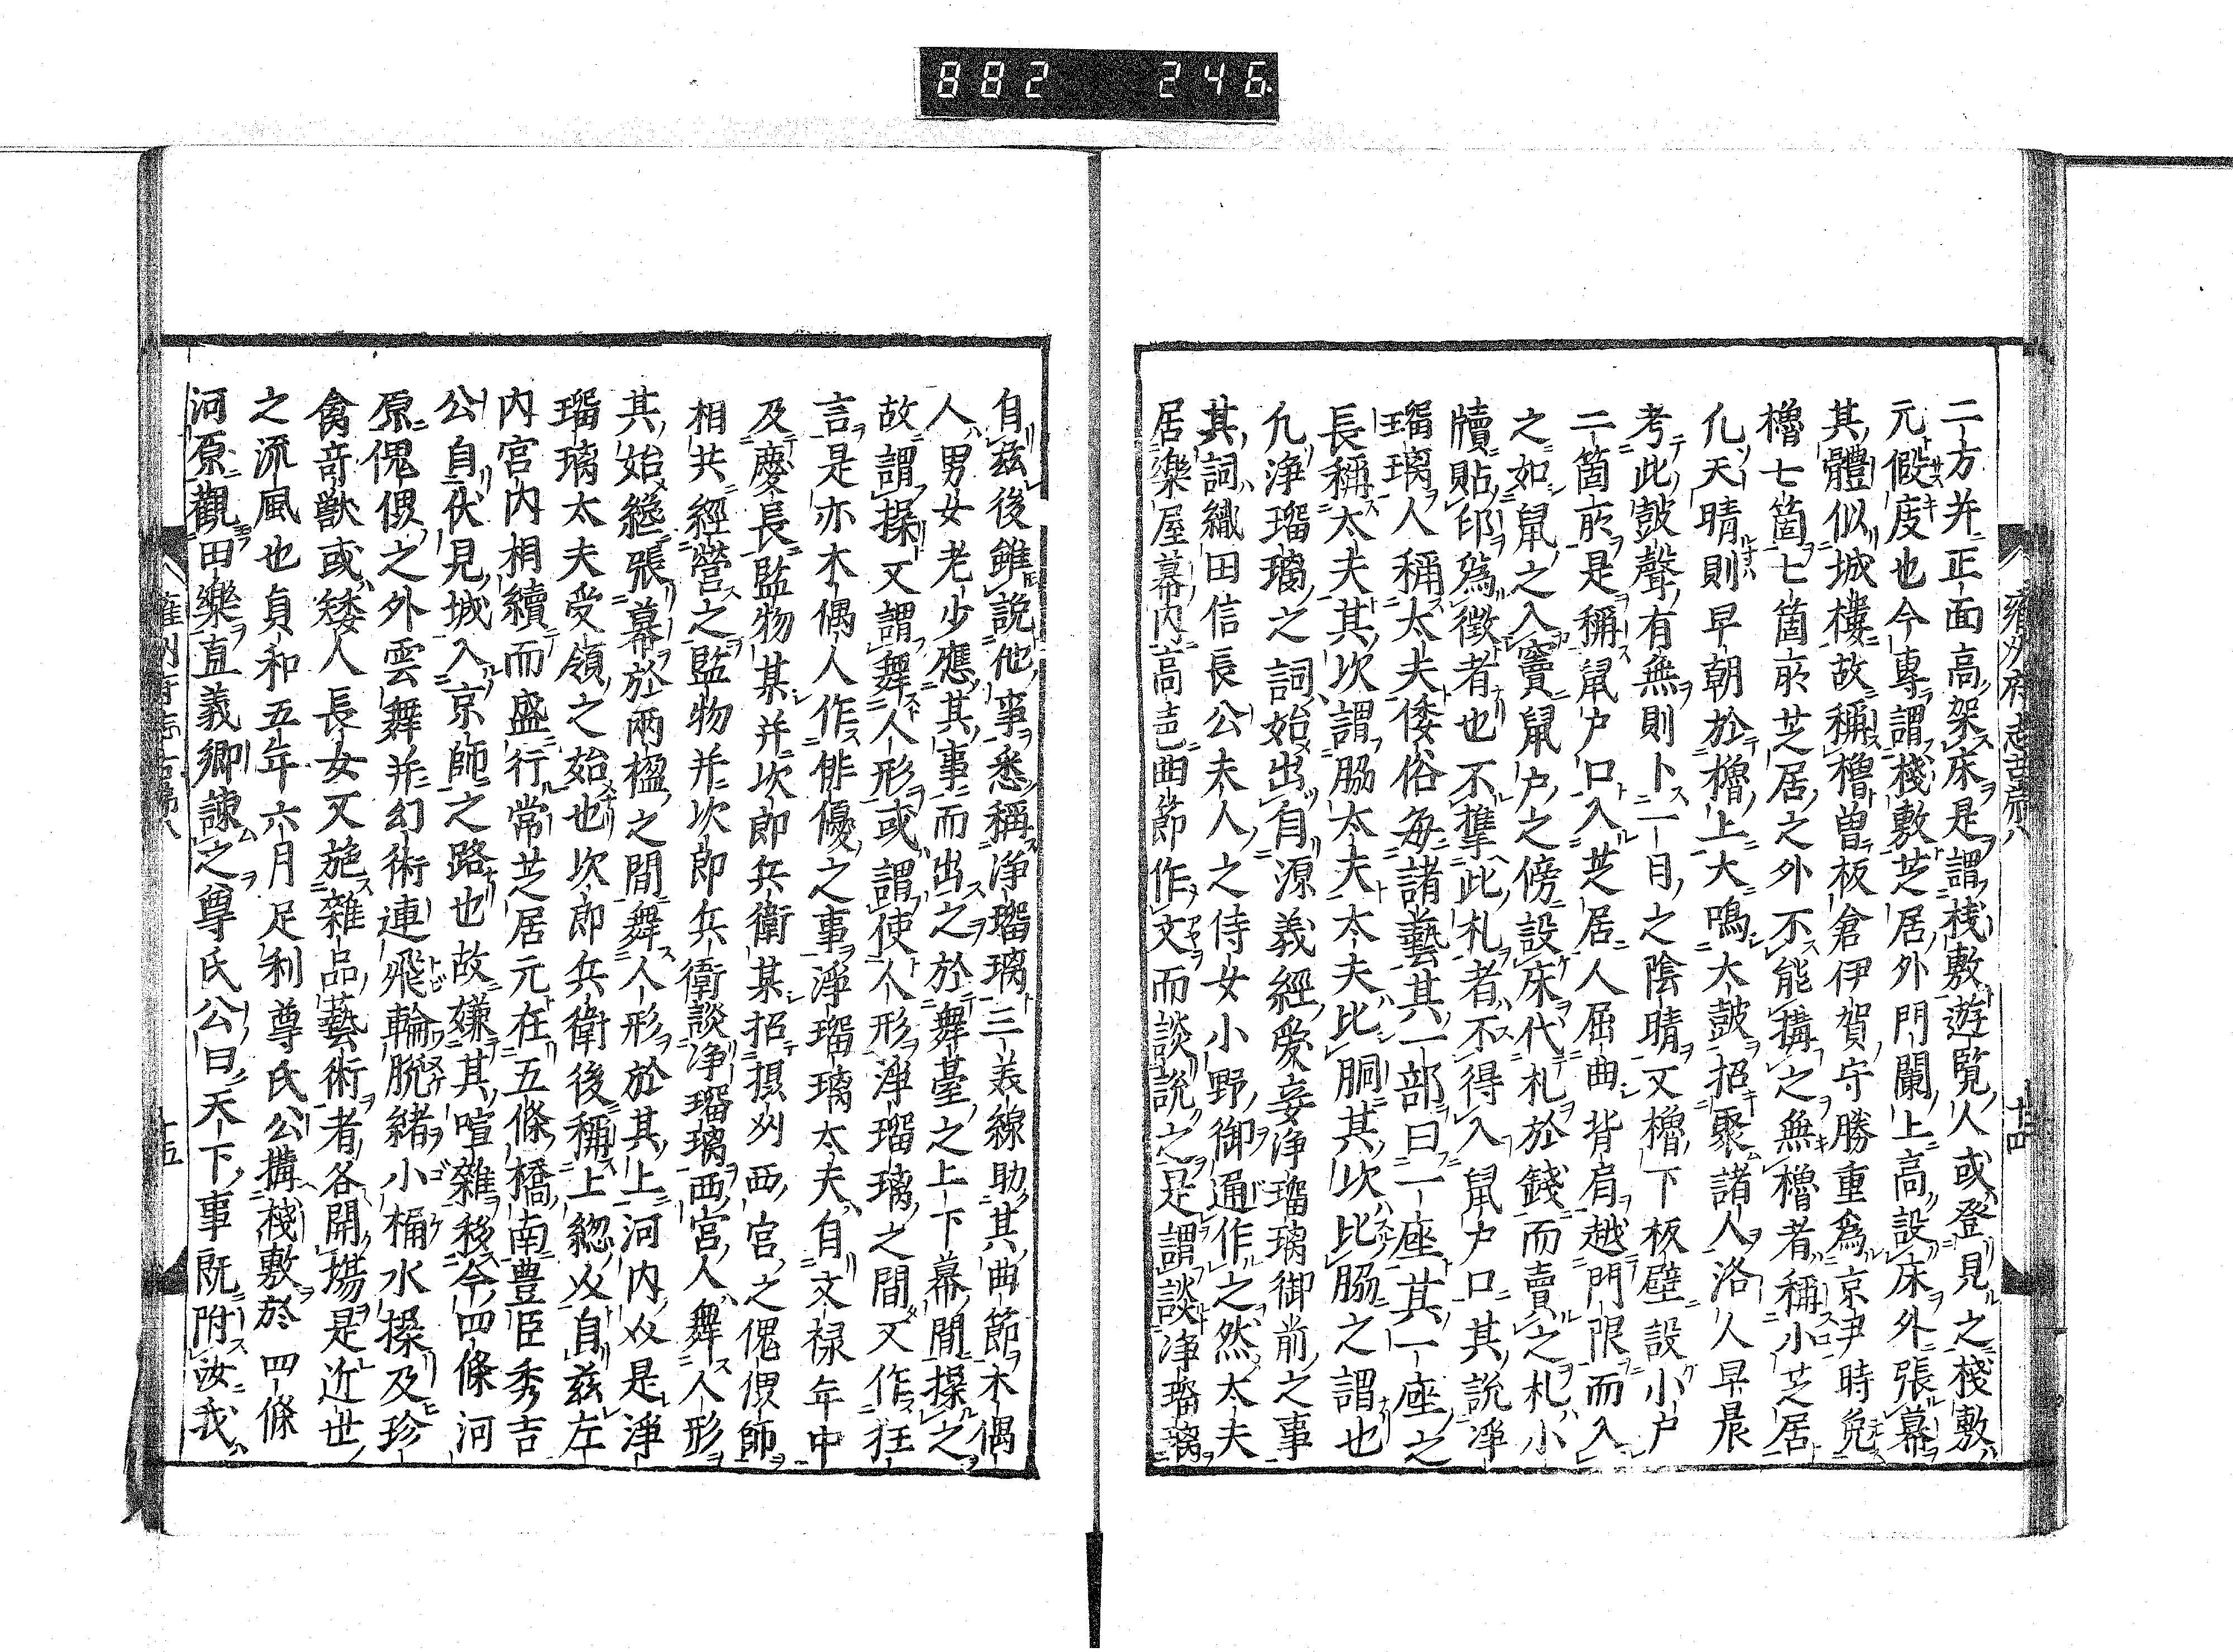 882 246.
二方并正面高架床是謂棧敷遊覧人或登見之棧敷
元假庋也今專謂棧敷芝居外門闌上高設床外張幕
其體似城樓故稱櫓曽板倉伊賀守勝重為京尹時免
櫓七箇七箇所芝居之外不能搆之無櫓者稱小芝居
凢天晴則早朝於櫓上大鳴太鼓招聚諸人洛人早晨
考此鼓聲有無則卜一日之陰晴又櫓下板壁設小戸
二箇所是稱鼠戸口入芝居人屈曲背肩越門限而入
之如鼠之入竇鼠戸之傍設床代札於錢而賣之札小
牘貼印為徴者也不携此札者不得入鼠戸口其說淨
瑠璃人稱太夫倭俗毎諸藝其一部曰一座其一座之
長稱太夫其次謂脇太夫太夫比胴其次比脇之謂也
凢淨瑠璃之詞始出自源義經愛妾淨瑠璃御前之事
其詞織田信長公夫人之侍女小野御通作之然太夫
居樂屋幕内高声曲節作文而談說之是謂談淨瑠璃
雍州府志古蹟八
十四
自兹後雖說他事悉稱淨瑠璃三美線助其曲節木偶
人男女老少應其事而出之於舞臺之上下幕間操之
故謂操又謂舞人形或謂使人形淨瑠璃之間又作狂
言是亦木偶人作俳優之事淨瑠璃太夫自文禄年中
及慶長監物某并次郎兵衛某招摂州西宮之傀儡師
相共經營之監物并次郎兵衛談淨瑠璃西宮人舞人形
其始緪張幕於兩楹之間舞人形於其上河内以是淨
瑠璃太夫受領之始也次郎兵衛後稱上総以自兹左
内宮内相續而盛行常芝居元在五條橋南豊臣秀吉
公自伏見城入京師之路也故嫌其喧雜移今四條河
原傀儡之外雲舞并幻術連飛輪脱緒小桶水操及珍
禽竒獸或矮人長女又施雜品藝術者各開場是近世
之流風也貞和五年六月足利尊氏公搆棧敷於四條
河原觀田樂直義卿諌之尊氏公曰天下事既附汝我
雍州府志古蹟八
十五